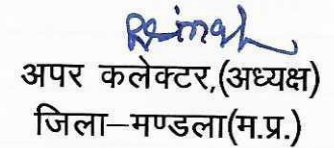 अपर कलेक्टर,(अध्यक्ष)
जिला–मण्डला(म.प्र.)